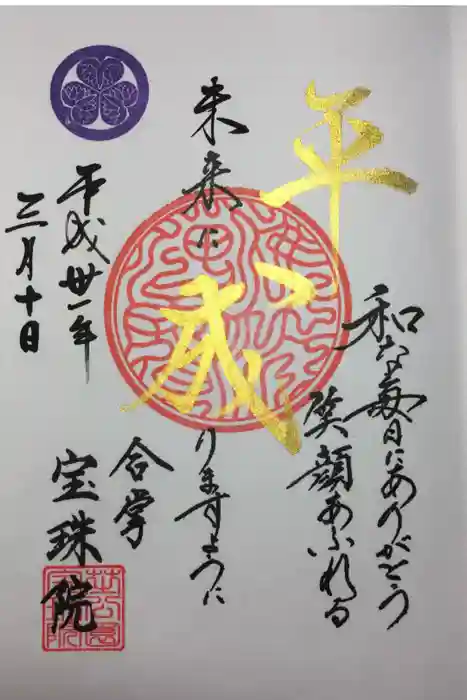 平成
和な毎日にありがとう
笑顔あふれる
未来に りますように
合掌
宝珠院
平成卅一年
三月十日